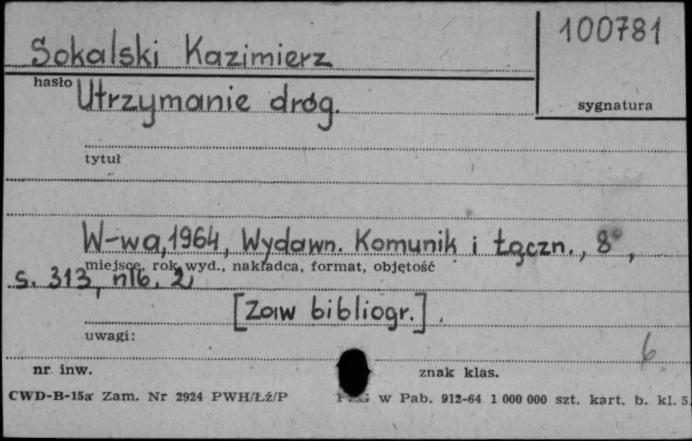 Sokalski Kazimierz
100781
hasło
sygnatura
Utrzymanie dróg.
tytuł
W-wa, 1964, Wydawn. Komunik i Łączn., 8°,
miejsce, rok wyd., nakładca, format, objętość
s. 313, nlb. 2
[Zaw bibliogr.].
uwagi:
6
nr inw.
znak klas.
CWD-B-15a Zam. Nr 2924 PWH/Łź/P
w Pab. 912-64 1 000 000 szt. kart. b. kl. 5.